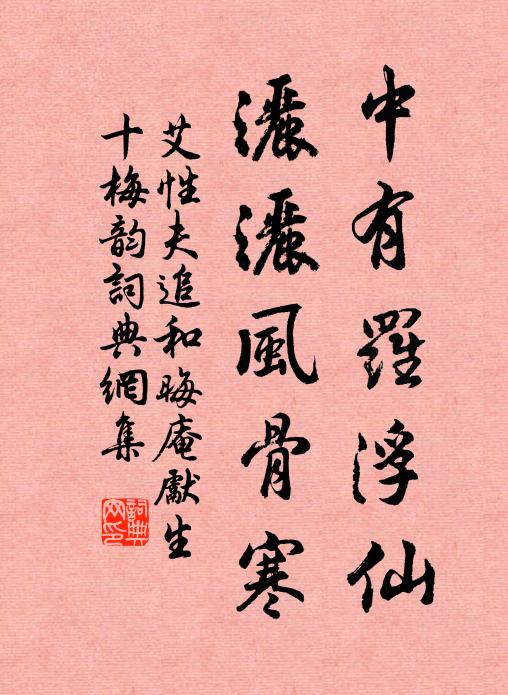 中有羅浮仙
灑灑風骨寒
艾性夫追和晦庵獻生
十梅韵詞典網集
詞典网印